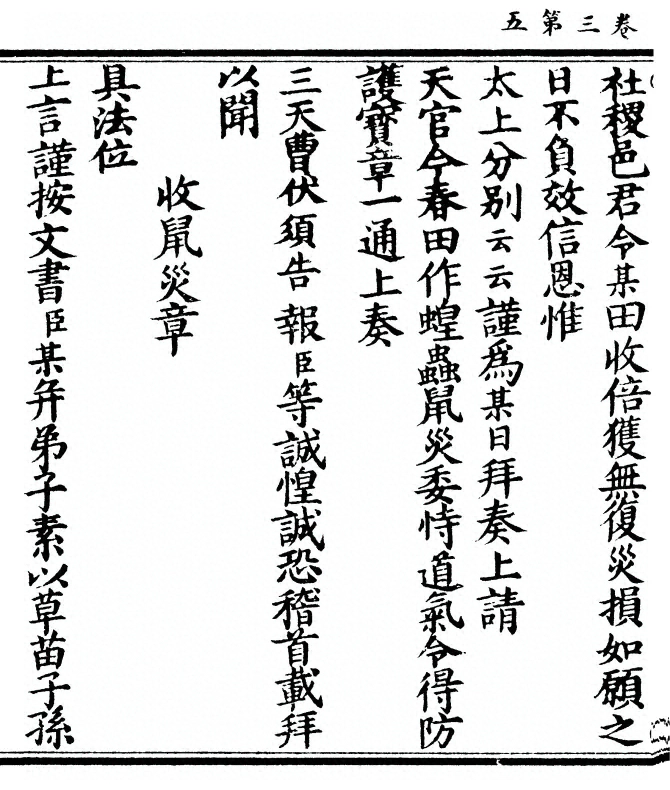 卷三第五
社稷邑君今某田收倍獲無復災損如願之
日不負效信恩惟
太上分別云云謹爲某日拜奏上請
天官今春田作蝗蟲鼠災委恃道氣令得防
護寶章一通上奏
三天曹伏須告報臣等誠惶誠恐稽首載拜
以聞
收鼠災章
具法位
上言謹按文書臣某并弟子素以草苗子孫